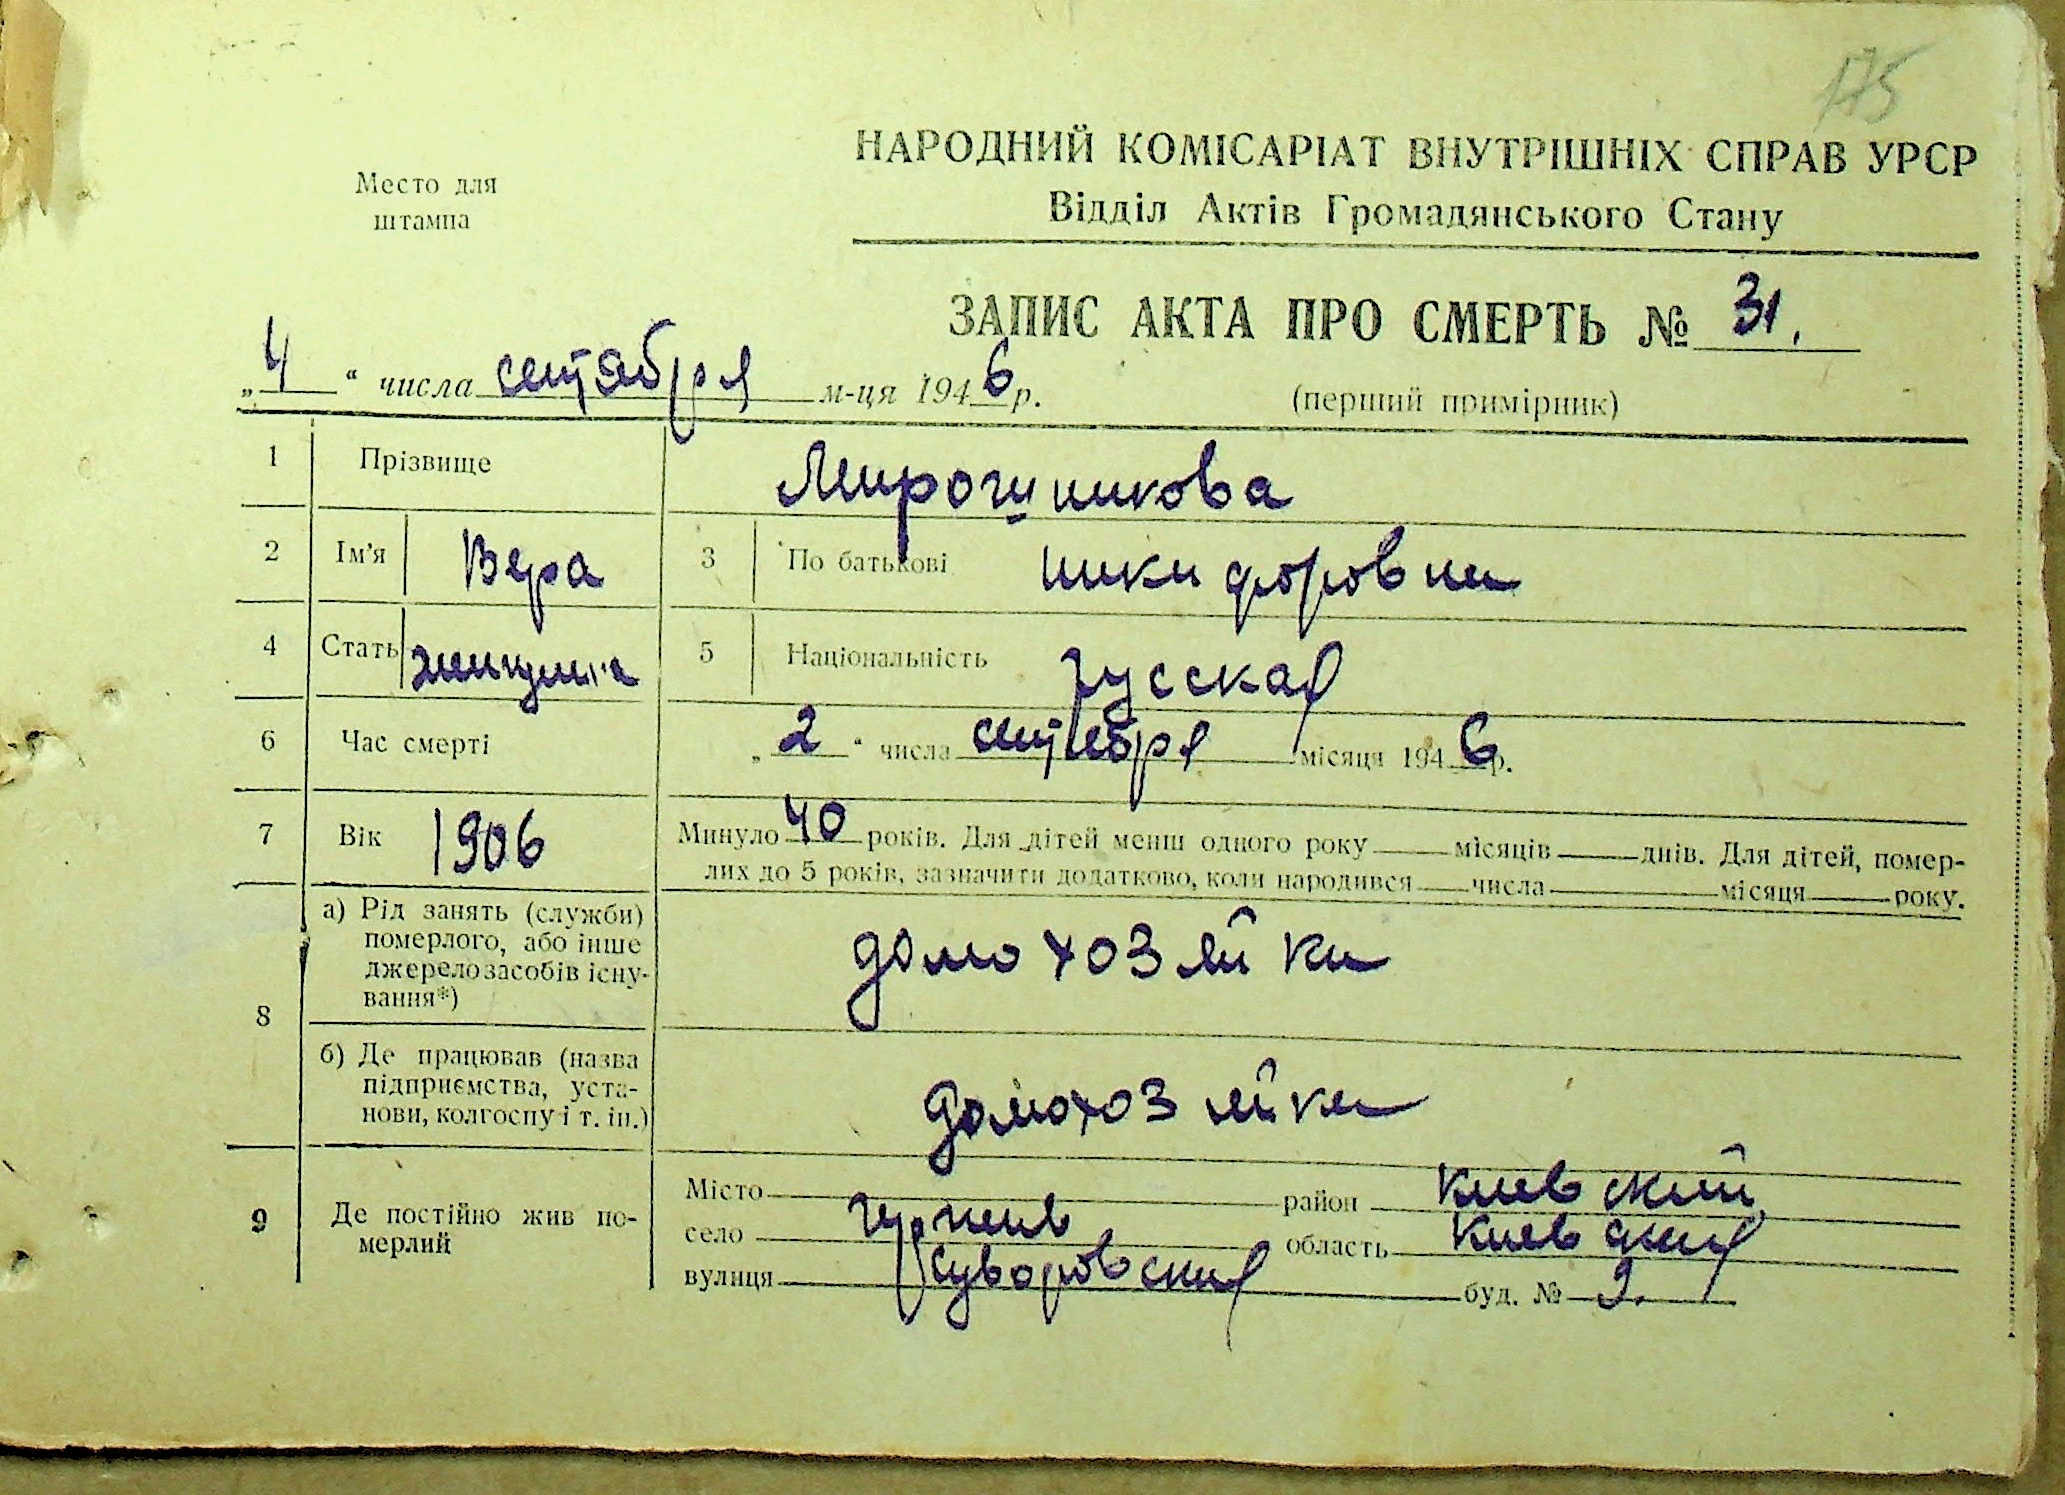 175
Место для
штампа
НАРОДНИЙ КОМІСАРІАТ ВНУТРІШНІХ СПРАВ УРСР
Відділ Актів Громадянського Стану
ЗАПИС АКТА ПРО СМЕРТЬ № 31.
„4“ числа сентября м-ця 1946 р.
(перший примірник)
1 Прізвище Мирошникова
2 Ім'я Вера 3 По батькові Никифоровна
4 Стать женщина 5 Національність русская
6 Час смерті „2“ числа сентября місяця 1946 р.
7 Вік 1906 Минуло 40 років. Для дітей менш одного року місяців днів. Для дітей, помер-
лих до 5 років, зазначити додатково, коли народився числа місяця року.
8 а) Рід занять (служби)
померлого, або інше
джерело засобів існу-
вання*)
домохозяйка
б) Де працював (назва
підприємства, уста-
нови, колгоспу і т. ін.)
домохозяйка
9 Де постійно жив по-
мерлий
Місто район Киевский
село Ирпень область Киевская
вулиця Суворовская буд. № 9.